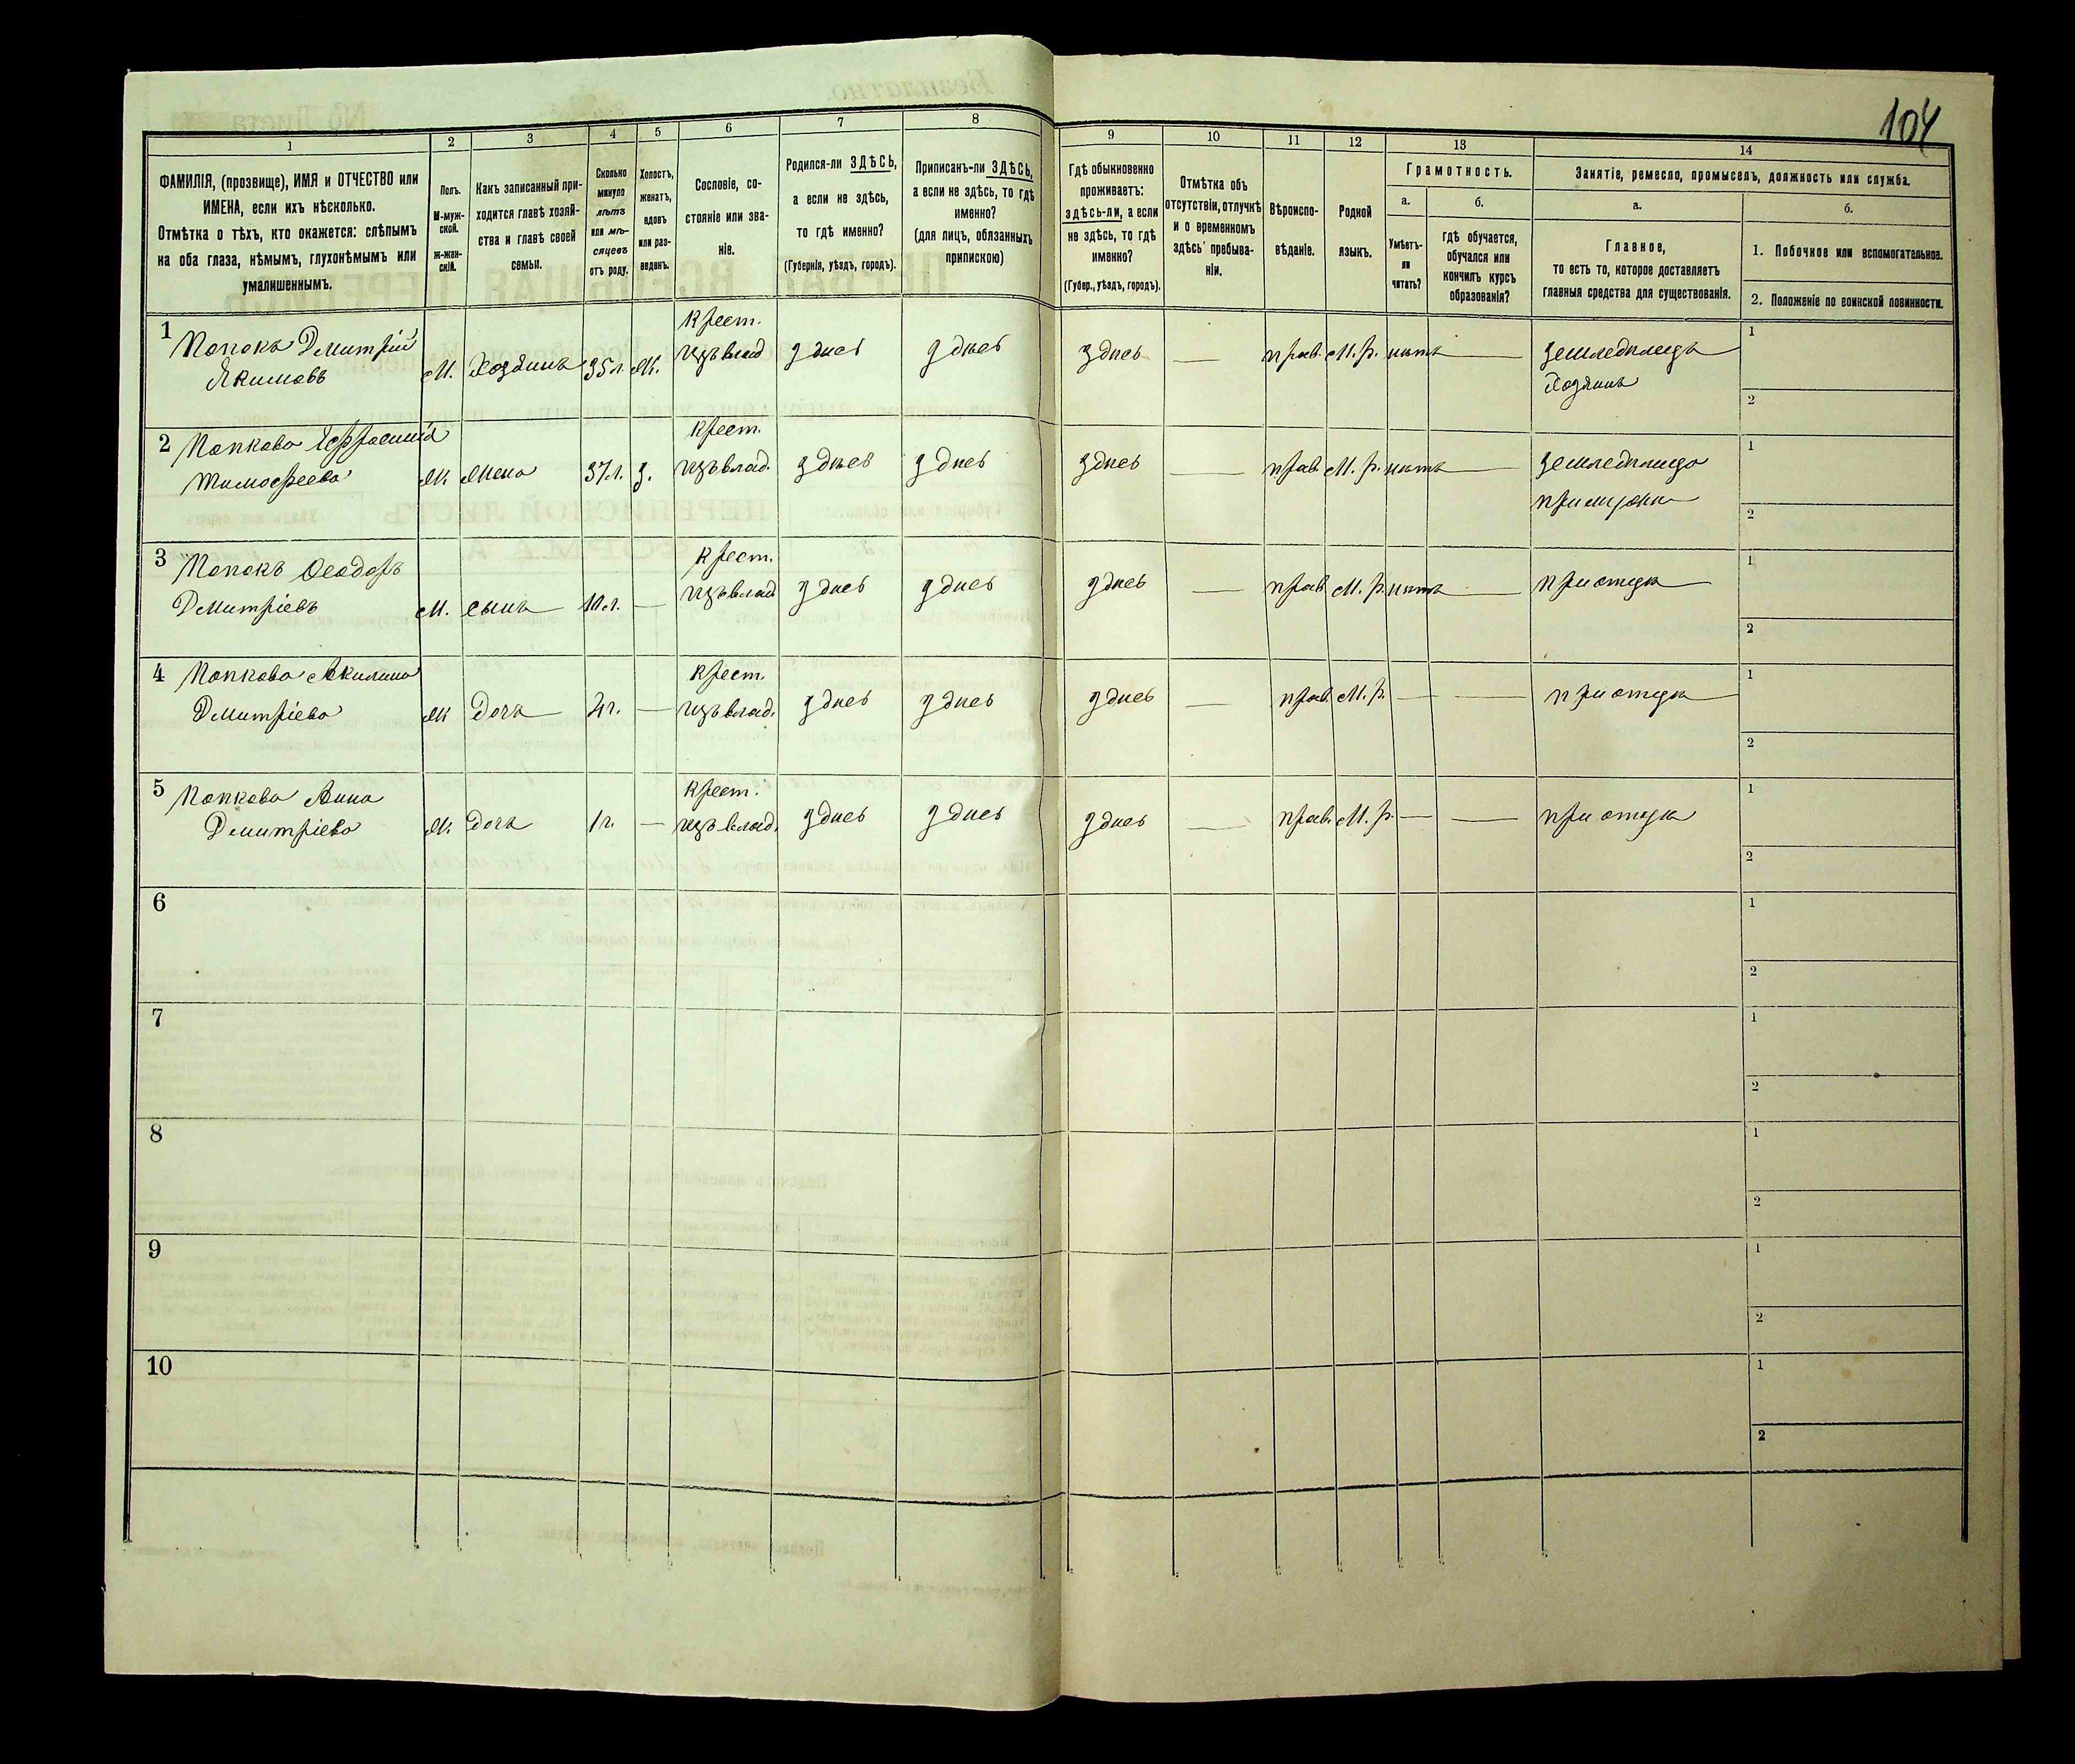 104
1
2
3
4
5
6
7
8
9
10
11
12
13
14
ФАМИЛІЯ, (прозвище), ИМЯ и ОТЧЕСТВО или
ИМЕНА, если ихъ нѣсколько.
Отмѣтка о тѣхъ, кто окажется: слѣпымъ
на оба глаза, нѣмымъ, глухонѣмымъ или
умалишеннымъ.
Полъ.
М-муж-
ской.
Ж-жен-
скій.
Какъ записанный при-
ходится главѣ хозяй-
ства и главѣ своей
семьи.
Сколько
минуло
лѣтъ
или мѣ-
сяцевъ
отъ роду.
Холостъ,
женатъ,
вдовъ
или раз-
веденъ.
Сословіе, со-
стояніе или зва-
ніе.
Родился-ли ЗДѢСЬ,
а если не здѣсь,
то гдѣ именно?
(Губернія, уѣздъ, городъ).
Приписанъ-ли ЗДѢСЬ,
а если не здѣсь, то гдѣ
именно?
(для лицъ, обязанныхъ
припискою)
Гдѣ обыкновенно
проживаетъ:
здѣсь-ли, а если
не здѣсь, то гдѣ
именно?
(Губер., уѣздъ, городъ).
Отмѣтка объ
отсутствіи, отлучкѣ
и о временномъ
здѣсь пребыва-
ніи.
Вѣроиспо-
вѣданіе.
Родной
языкъ.
Грамотность.
а.
Умѣетъ-
ли
читать?
б.
гдѣ обучается,
обучался или
кончилъ курсъ
образованія?
Занятіе, ремесло, промыселъ, должность или служба.
а.
Главное,
то есть то, которое доставляетъ
главныя средства для существованія.
б.
1. Побочное или вспомогательное.
2. Положеніе по воинской повинности.
1 Попокъ Дмитрій
Якимовъ
М. Хозяинъ 35 л. Ж. Крест.
изъ влад. здѣсь здѣсь здѣсь — прав. М. р. нѣтъ — земледѣлецъ
Хозяинъ
1
2
2 Попкова Ефросинія
Тимофеева
Ж. Жена 37 л. З. Крест.
изъ влад. здѣсь здѣсь здѣсь — прав. М. р. нѣтъ — земледѣлица
при мужѣ
1
2
3 Попокъ Ѳеодоръ
Дмитріевъ
М. сынъ 10 л. — Крест.
изъ влад. здѣсь здѣсь здѣсь — прав. М. р. нѣтъ — при отцѣ
1
2
4 Попкова Акилина
Дмитріева
Ж дочь 4 г. — Крест.
изъ влад. здѣсь здѣсь здѣсь — прав. М. р. — — при отцѣ
1
2
5 Попкова Анна
Дмитріева
Ж. дочь 1 г. — Крест.
изъ влад. здѣсь здѣсь здѣсь — прав. М. р. — — при отцѣ
1
2
6
1
2
7
1
2
8
1
2
9
1
2
10
1
2